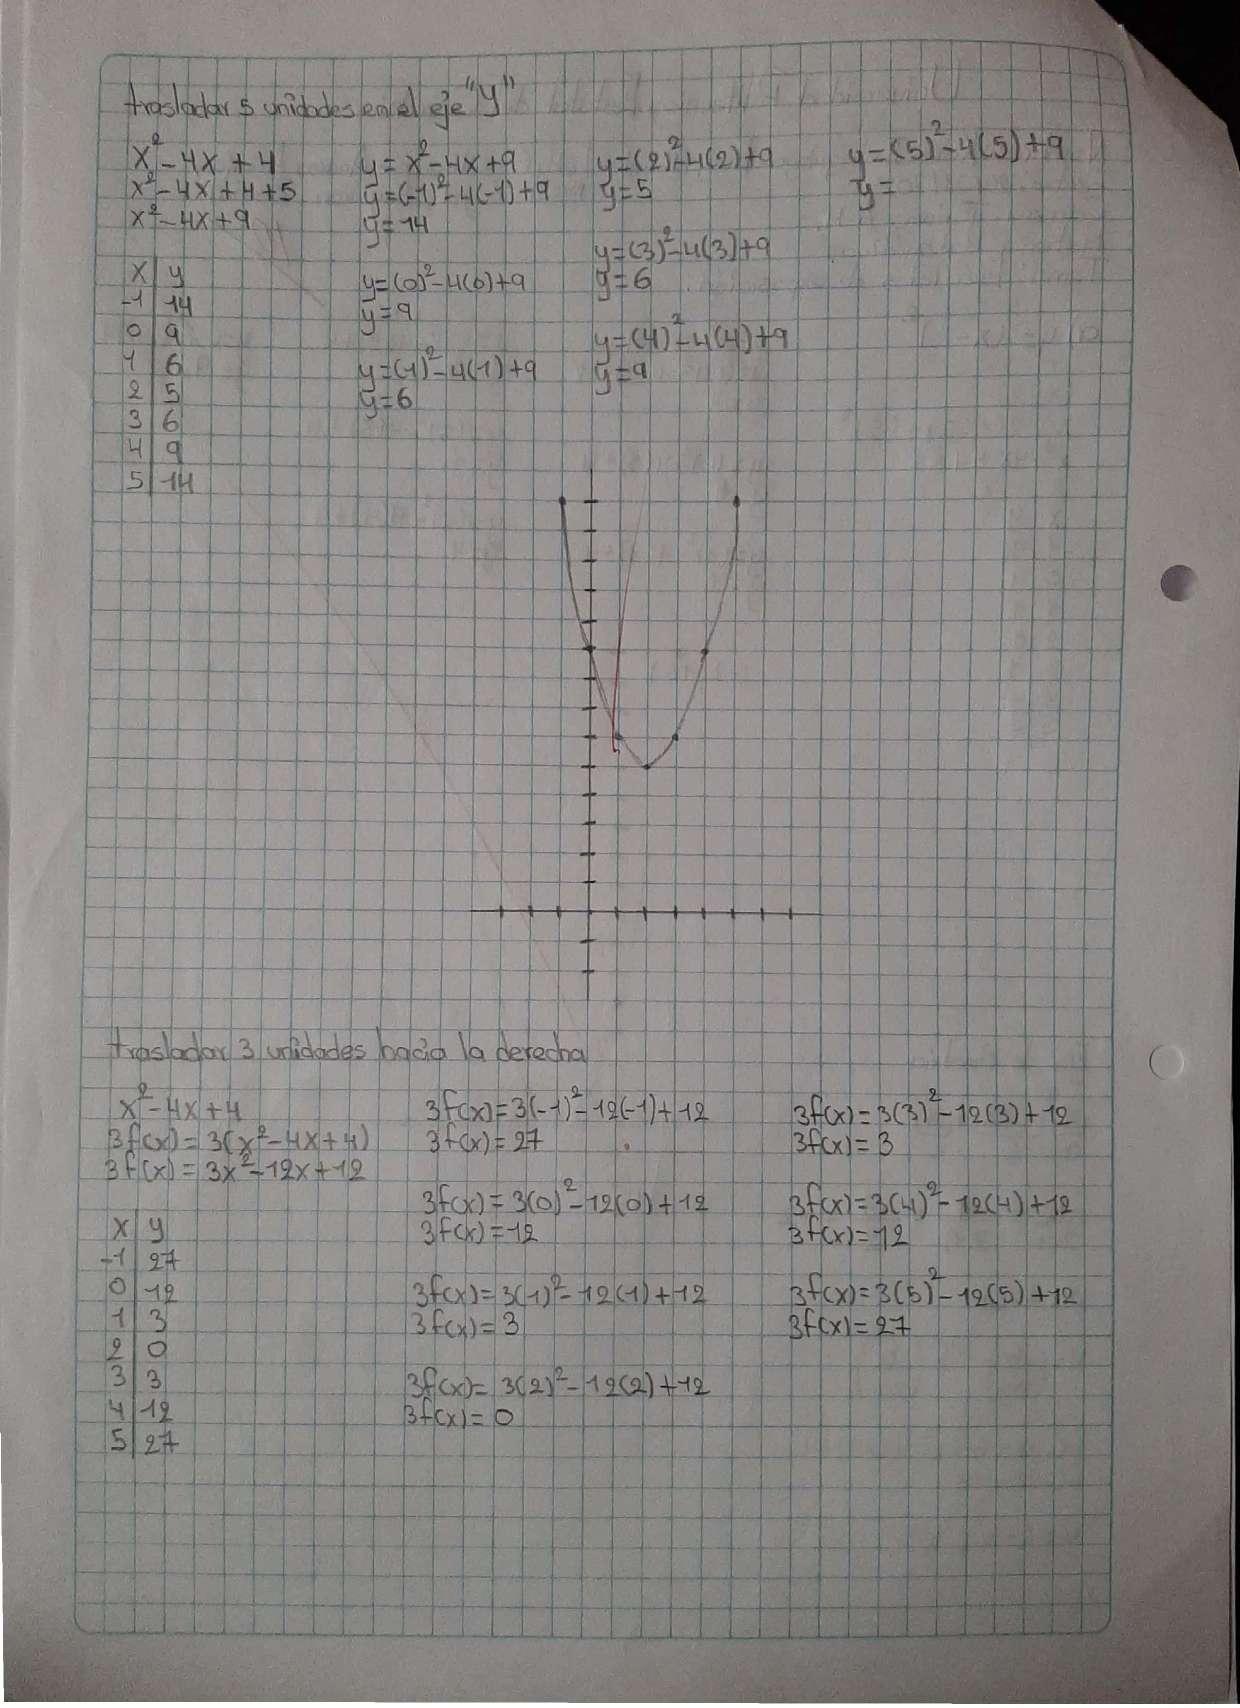 trasladar 5 unidades en el eje "y"
x²-4x+4
x²-4x+4+5
x²-4x+9
x y
-1 14
0 9
1 6
2 5
3 6
4 9
5 14
y=x²-4x+9
y=(-1)²-4(-1)+9
y=14
y=(0)²-4(0)+9
y=9
y=(1)²-4(1)+9
y=6
y=(2)²-4(2)+9
y=5
y=(3)²-4(3)+9
y=6
y=(4)²-4(4)+9
y=9
y=(5)²-4(5)+9
y=
trasladar 3 unidades hacia la derecha
x²-4x+4
3f(x)=3(x²-4x+4)
3f(x)=3x²-12x+12
x y
-1 27
0 12
1 3
2 0
3 3
4 12
5 27
3f(x)=3(-1)²-12(-1)+12
3f(x)=27
3f(x)=3(0)²-12(0)+12
3f(x)=12
3f(x)=3(1)²-12(1)+12
3f(x)=3
3f(x)=3(2)²-12(2)+12
3f(x)=0
3f(x)=3(3)²-12(3)+12
3f(x)=3
3f(x)=3(4)²-12(4)+12
3f(x)=12
3f(x)=3(5)²-12(5)+12
3f(x)=27